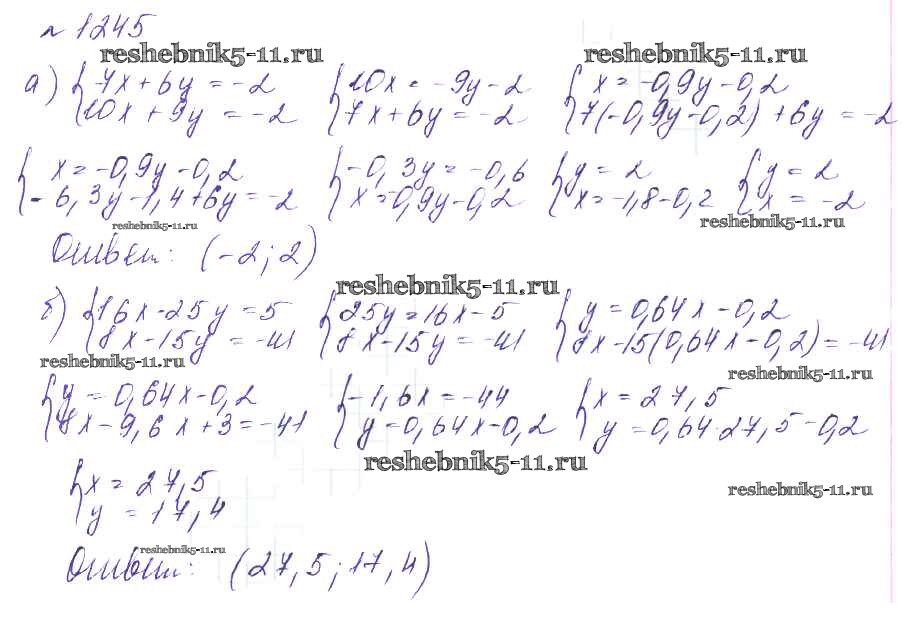 № 1245
reshebnik5-11.ru reshebnik5-11.ru
а) {7x + 6y = -2 {10x = -9y - 2 {x = -0,9y - 0,2
10x + 9y = -2 7x + 6y = -2 7(-0,9y - 0,2) + 6y = -2
{x = -0,9y - 0,2 {-0,3y = -0,6 {y = 2 {y = 2
-6,3y - 1,4 + 6y = -2 x = -0,9y - 0,2 x = -1,8 - 0,2 x = -2
reshebnik5-11.ru reshebnik5-11.ru
Ответ: (-2; 2)
reshebnik5-11.ru
б) {16x - 25y = 5 {25y = 16x - 5 {y = 0,64x - 0,2
8x - 15y = -41 8x - 15y = -41 8x - 15(0,64x - 0,2) = -41
reshebnik5-11.ru reshebnik5-11.ru
{y = 0,64x - 0,2 {-1,6x = -44 {x = 27,5
8x - 9,6x + 3 = -41 y = 0,64x - 0,2 y = 0,64·27,5 - 0,2
reshebnik5-11.ru
{x = 27,5
y = 17,4
reshebnik5-11.ru
reshebnik5-11.ru
Ответ: (27,5; 17,4)